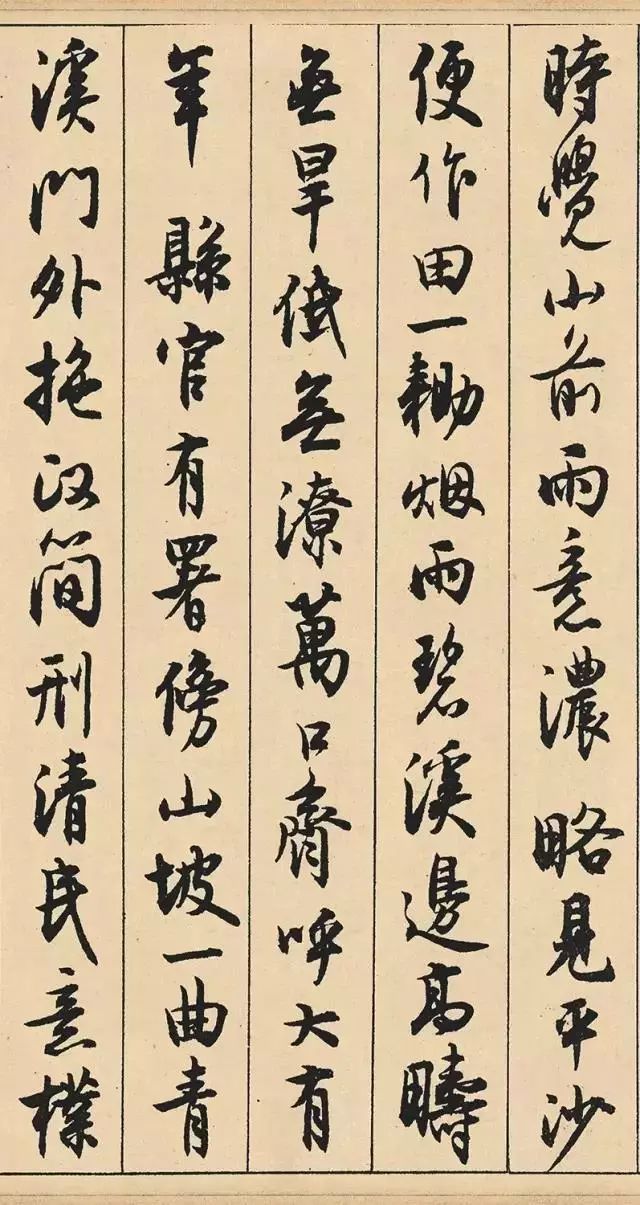 時覺山前雨意濃 略見平沙
便作田一耡烟雨碧溪邊高疇
無旱低無潦萬口齊呼大有
年 縣官有署傍山坡一曲青
溪門外拖政簡刑清民意樸